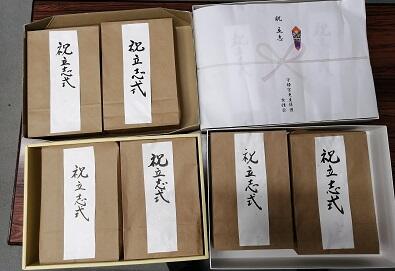 祝立志式
祝立志式
祝立志
祝立志式
祝立志式
祝立志式
祝立志式